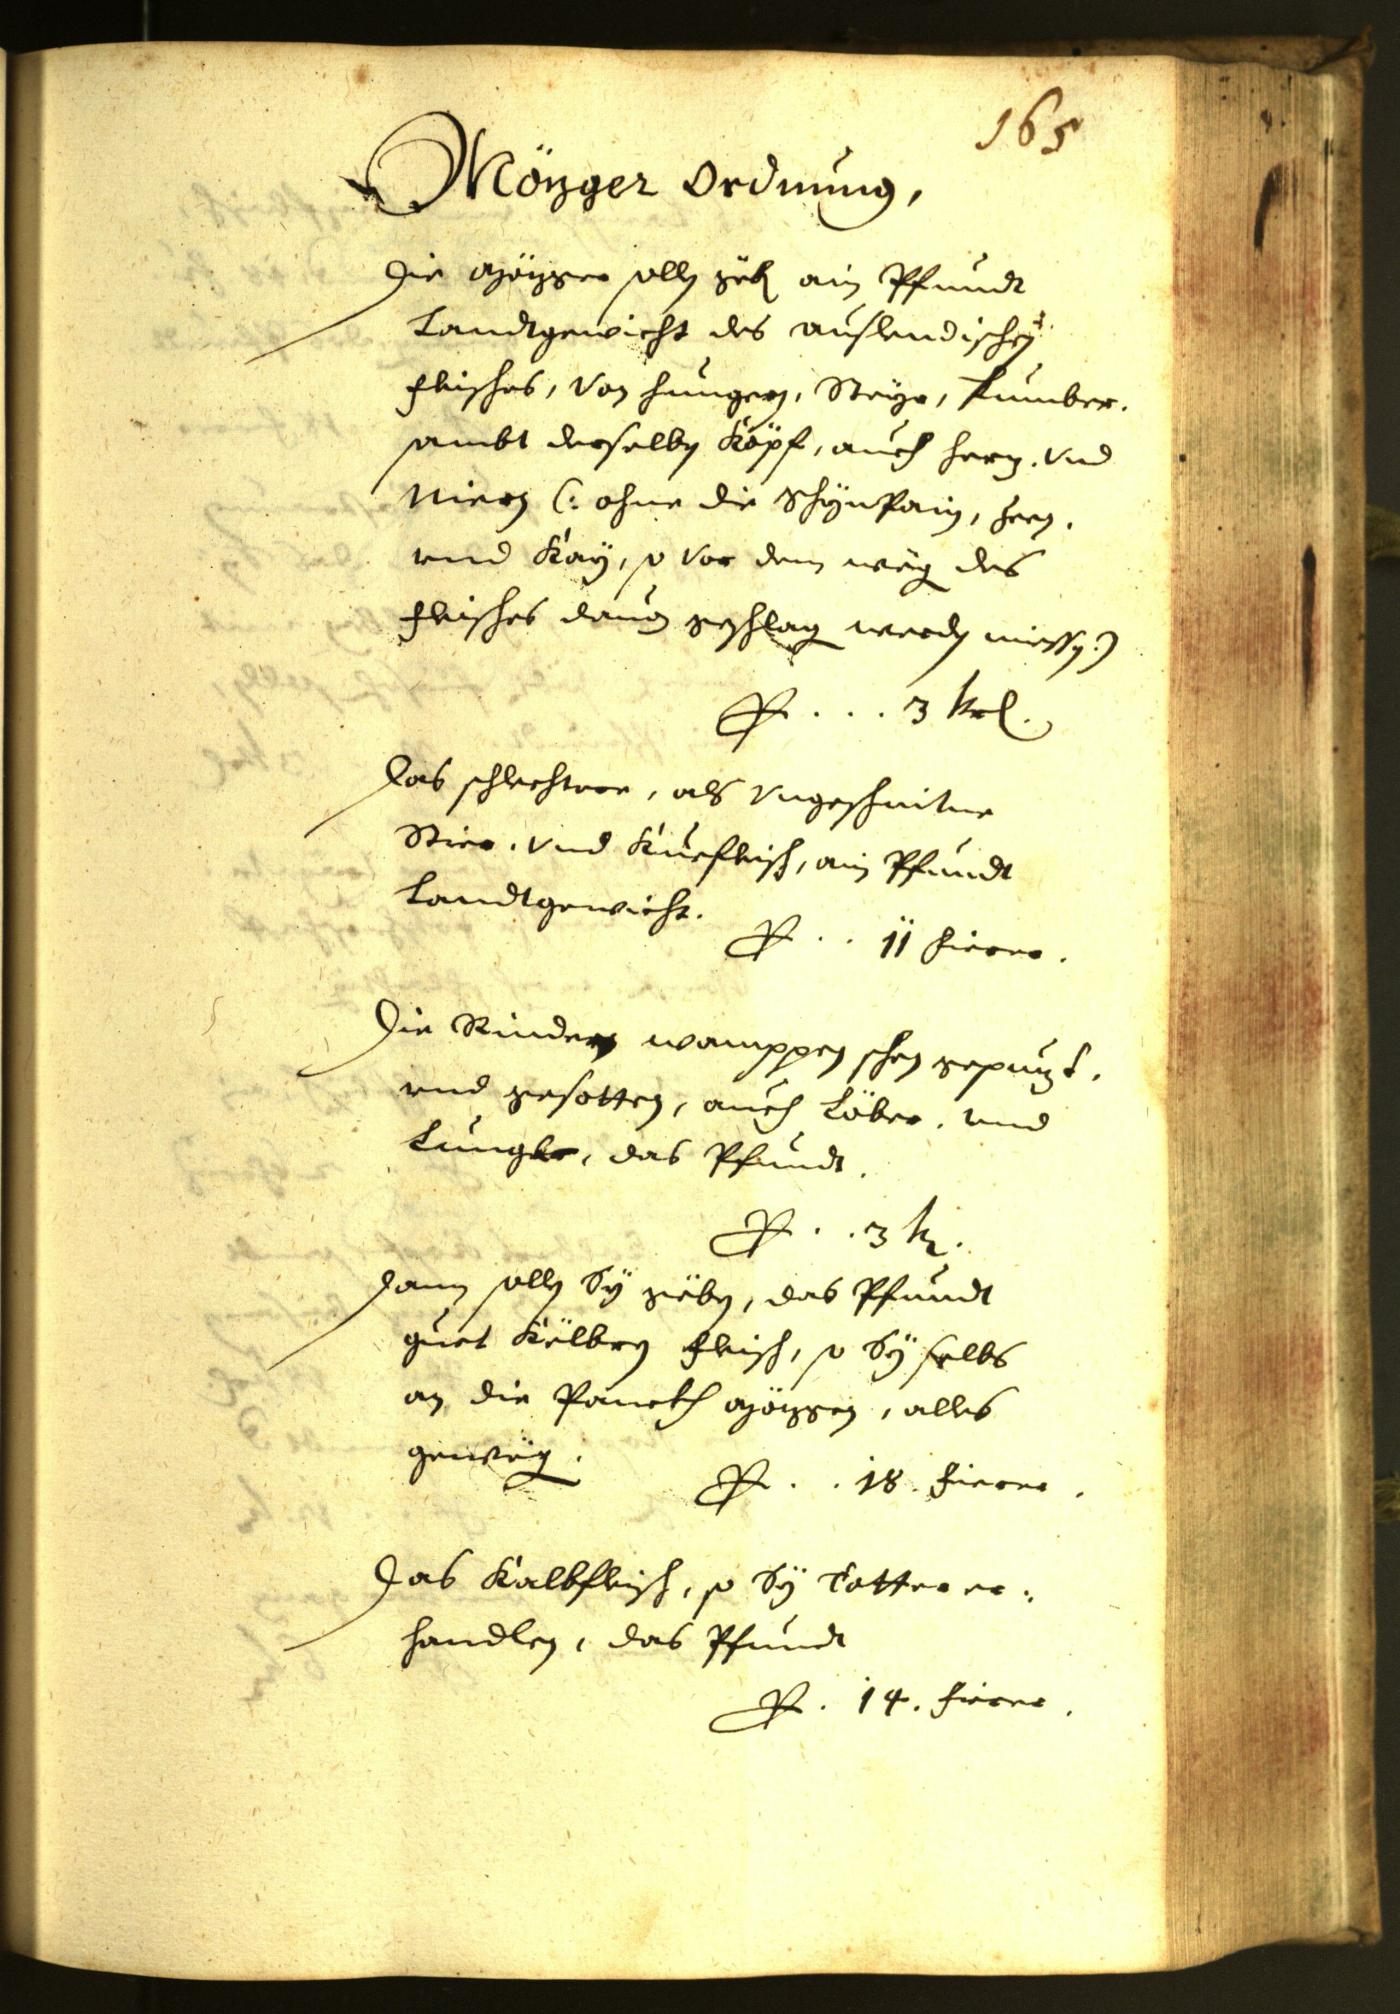 165
Mözger Ordnung,
Die Mözger solln geb ain Pfundt
Landtgewicht des auslendischen
Fleisches, Von Hungern, Steyr,
sambt derselben Köpf, auch Herz. Vnd
Niern (: ohne die Schynpain, Hern.
vnd Kay, so vor dem wëg des
Fleisches dauon geschlag werden miessn:)
P. . . . 3 krl.
Das schlechtere, als Vngeschnitne
Stier. Vnd Kuefleisch, ain Pfundt
Landtgewicht.
P. . . 11 Fierer.
Die Rindern wamppen schen gepuzt.
vnd gesotten, auch Löber. vnd
Lungl, das Pfundt.
P. . . 3 kr.
Dann solln Sÿ gëben, das Pfundt
guet Kelbern Fleisch, so Sÿ selbs
an die Panckh Mözgen, alles
gewëg.
P. . . 18. Fierer.
Das Kalbfleisch, so Sÿ Totter er:
handlen, das Pfundt
P. 14. Fierer.